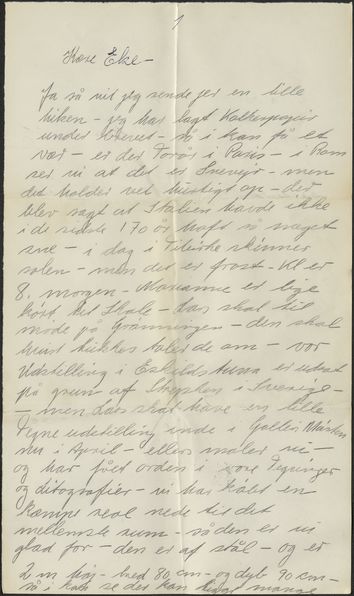 1
Kære Eke -
Ja så vil jeg sende jer en lille
hilsen - jeg har lagt Kalkerpapir
under brevet - så i kan få et
vær - er der Forår i Paris - i Rom
ser vi at det er Snevejr - men
det holder vel hurtigt op - der
blev sagt at Italien havde ikke
i de sidste 170 år haft så meget
sne - i dag i Tibirke skinner
solen - men det er frost - Kl er
8. morgen - Marianne er lige
kørt til Skole - das skal til
møde på Grønningen - den skal
taler de om - vor
Udstilling i Eskilstuna er udsat
på grund af Strejken i Sverige -
- men das skal have en lille
Tegne udstilling inde i Galleri
nu i April - ellers maler vi -
og har fået orden i vore Tegninger
og litografier - vi har købt en
kæmpe reol nede til det
mellemste rum - så den er vi
glad for - den er af stål - og er
2 m høj - bred 80 cm - og dyb 90 cm -
så i kan se der kan ligge mange